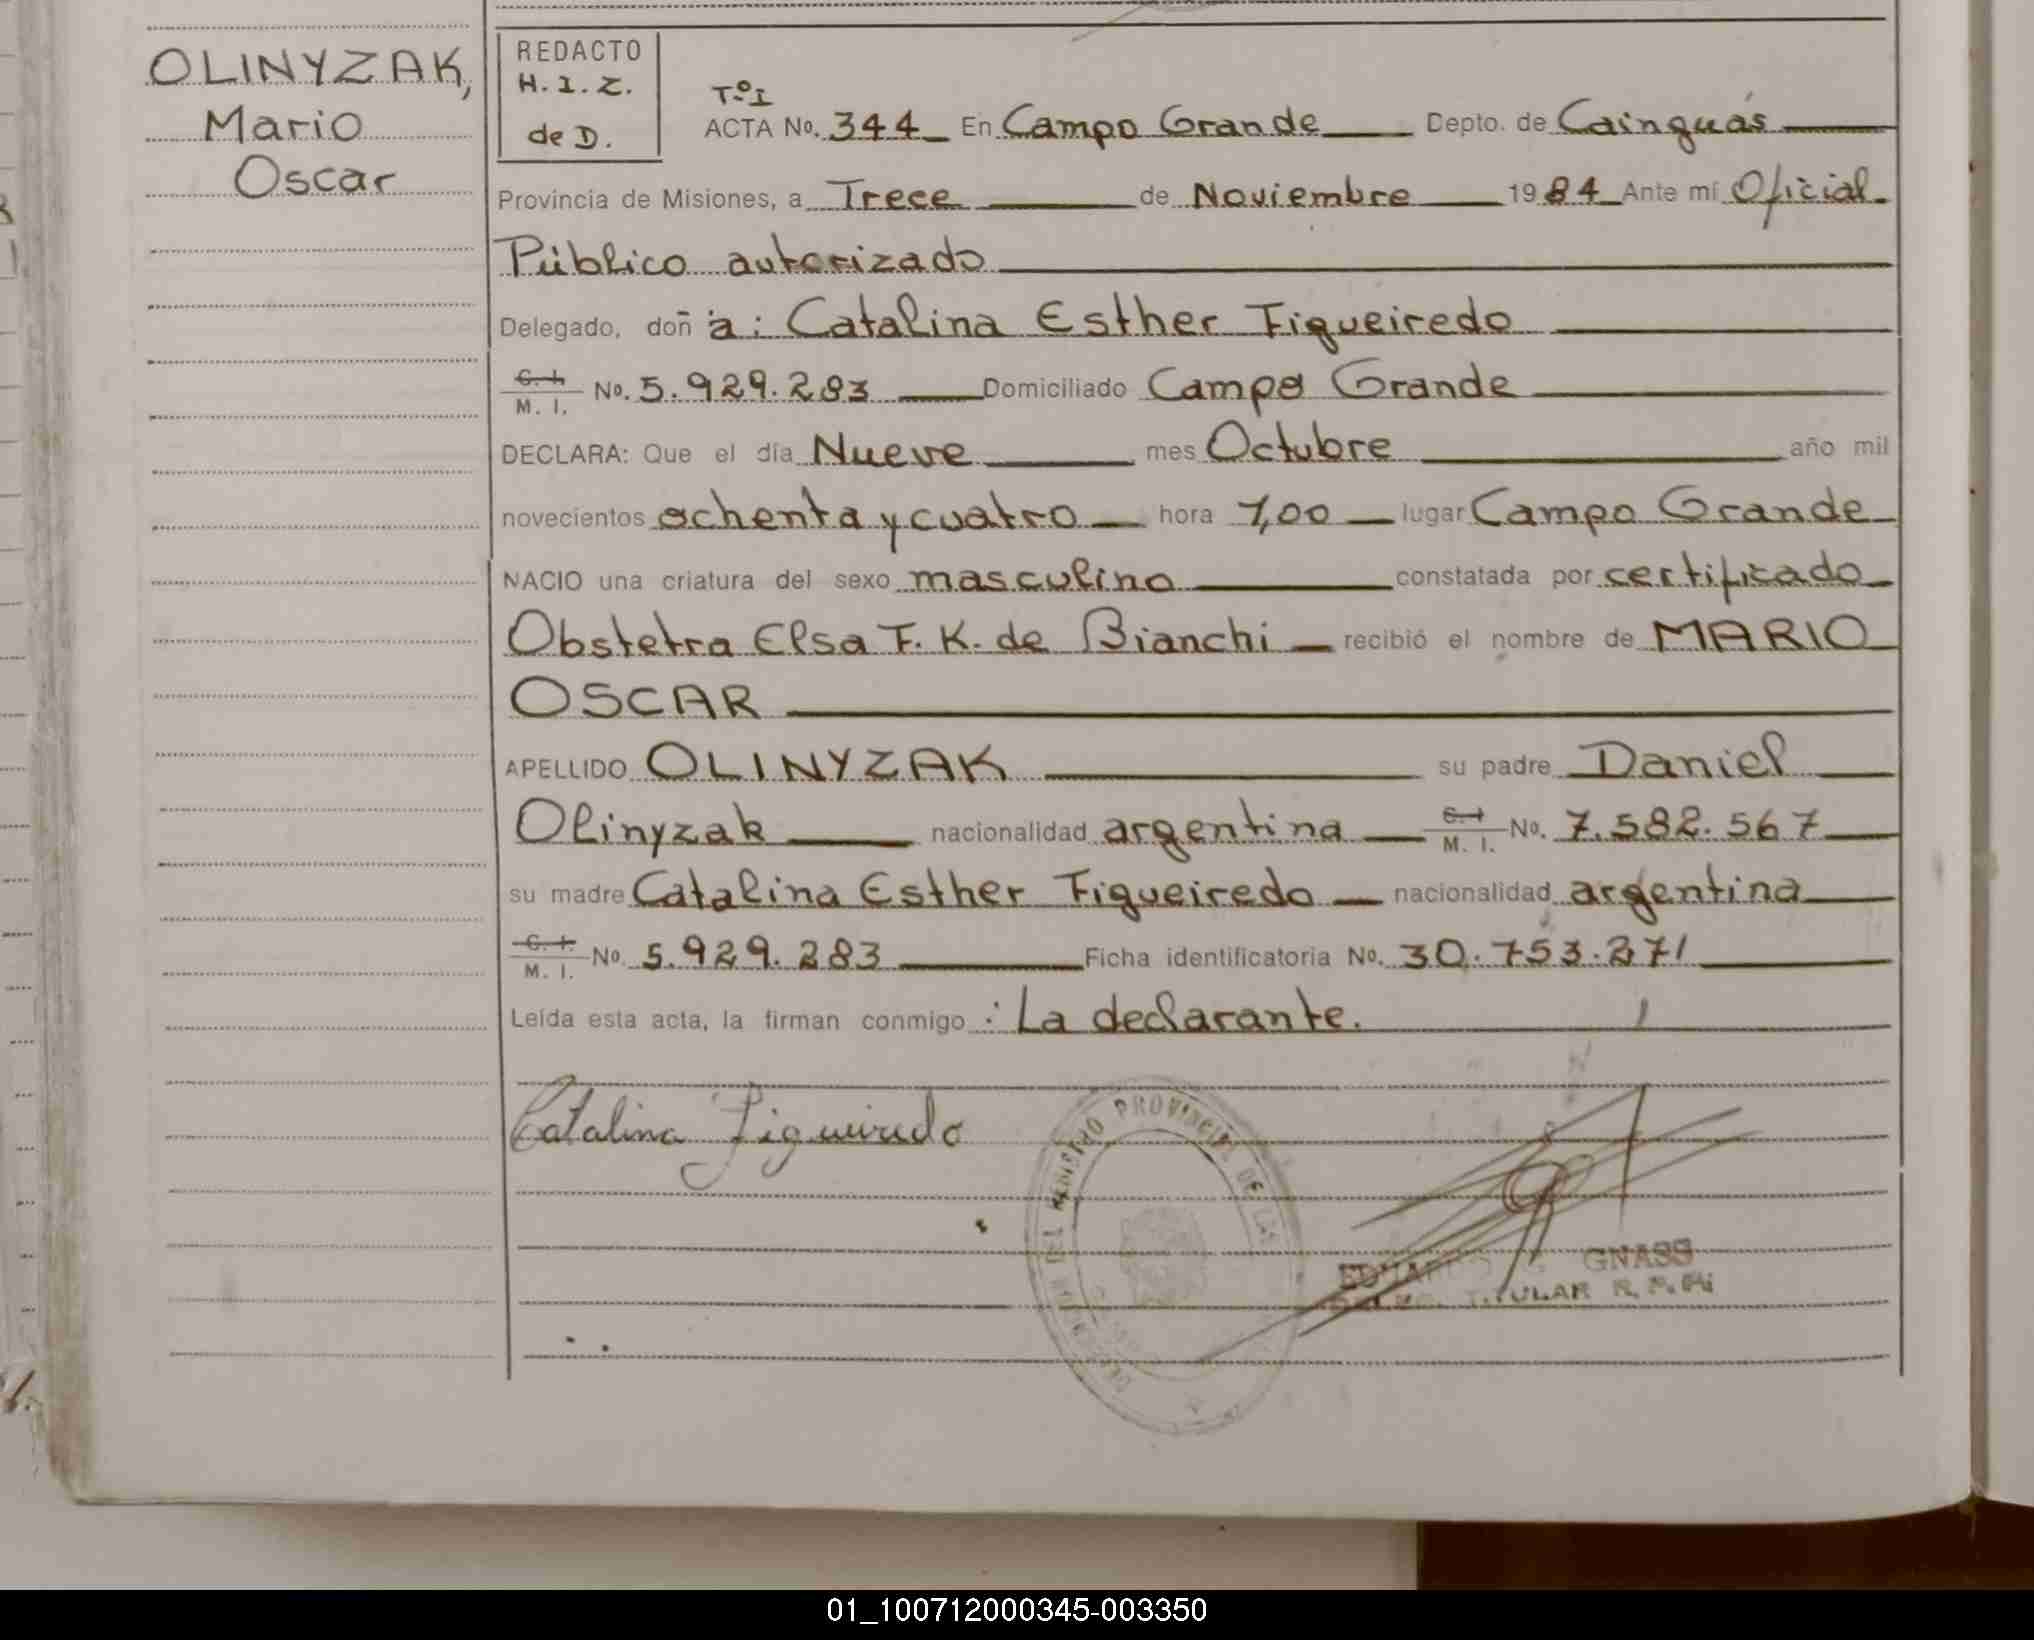 OLINYZAK,
Mario
Oscar
REDACTO
H. I. Z.
de D.
Tº I
ACTA No. 344 En Campo Grande Depto. de Cainguás
Provincia de Misiones, a Trece de Noviembre 1984 Ante mí Oficial
Público autorizado
Delegado, doñ a: Catalina Esther Figueiredo
C. I. M. I. No. 5.929.283 Domiciliado Campo Grande
DECLARA: Que el día Nueve mes Octubre año mil
novecientos ochenta y cuatro hora 7,00 lugar Campo Grande
NACIO una criatura del sexo masculino constatada por certificado
Obstetra Elsa F. K. de Bianchi recibió el nombre de MARIO
OSCAR
APELLIDO OLINYZAK su padre Daniel
Olinyzak nacionalidad argentina C. I. M. I. No. 7.582.567
su madre Catalina Esther Figueiredo nacionalidad argentina
C. I. M. I. No. 5.929.283 Ficha identificatoria No. 30.753.271
Leída esta acta, la firman conmigo : La declarante.
Catalina Figueiredo
DEL REGISTRO PROVINCIAL DE LAS
GNASS
TITULAR R. P. P.
01_100712000345-003350